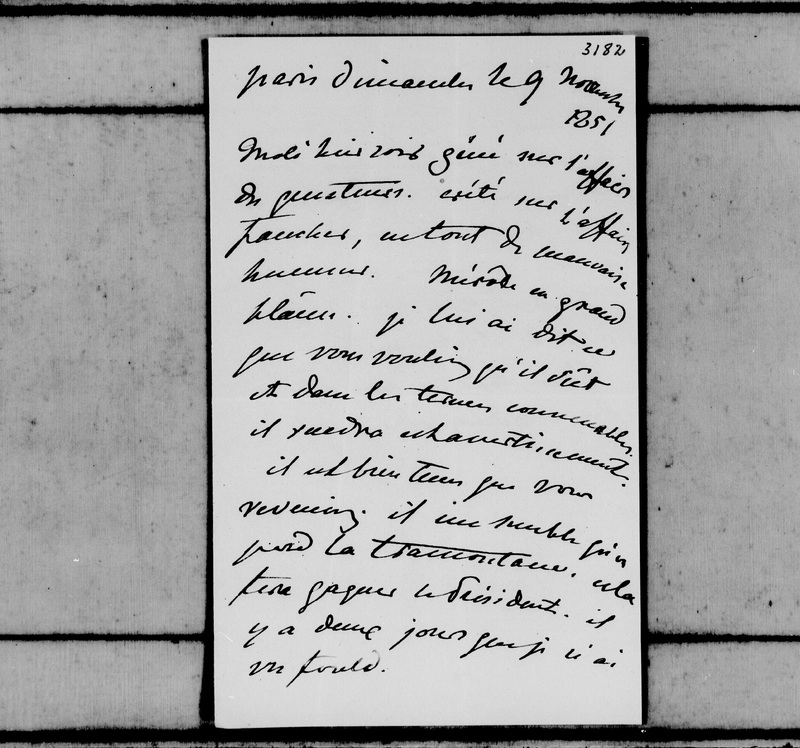 3182
paris Dimanche le 9 Novembre
1851
Molé hier soir géné sur l'affaire
des questeurs. irrité sur l'affaire
faucher, en tout de mauvaise
humeur. Mérode en grand
blâme. je lui ai dit ce
que vous vouliez qu'il sût
et dans les termes convenables.
il rendra cet avertissement.
il est bien tems que vous
reveniez. il me semble qu'on
perd la tramontane. cela
fera gagner le Président. il
y a deux jours que je n'ai
vu fould.